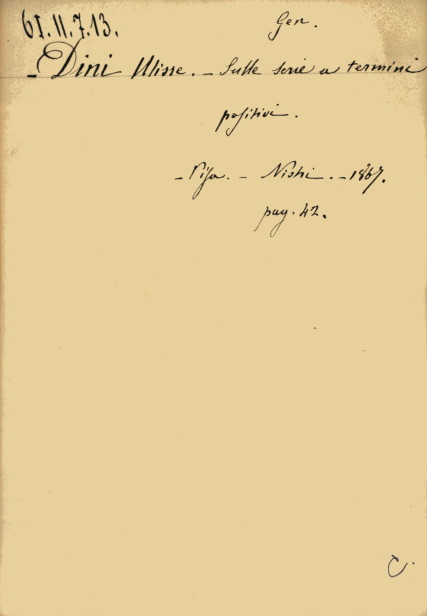 61.11.7.13.
Gen.
- Dini Ulisse. - Sulle serie a termini
positivi.
- Pisa. - Nistri. - 1867.
pag. 42.
C.